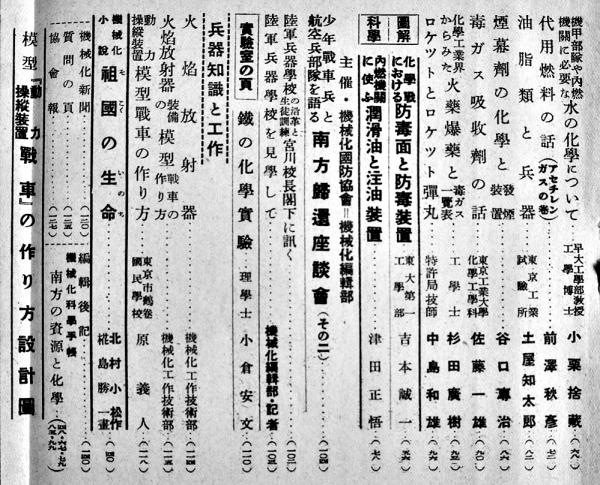 機甲部隊や内燃機關に必要な 水の化學について 早大工學部教授 工學博士 小栗捨藏 (六)
代用燃料の話(アセチレンガスの巻) 前澤秋彦 (七二)
油脂類と兵器 東京工業試驗所 土屋知太郎 (八二)
煙幕劑の化學と發煙裝置 工學士 谷口專治
毒ガス吸收劑の話 東京工業大學化學工學科 佐藤一雄 (九〇)
化學工業界からみた 火藥爆藥と毒ガス一覽表 工學士 杉田廣樹 (九三)
ロケットとロケット彈丸 特許局技師 中島和雄
圖解 化學戰における 防毒面と防毒裝置 東大第一工學部 吉本誠一
科學 内燃機關に使ふ 潤滑油と注油裝置 津田正悟
主催・機械化國防協會=機械化編輯部
少年戰車兵と航空兵部隊を語る 南方歸還座談會(その二) (一〇四)
陸軍兵器學校の沿革と生徒訓練 宮川校長閣下に訊く (一〇二)
陸軍兵器學校を見學して 機械化編輯部・記者 (一〇三)
實驗室の頁 鐵の化學實驗 理學士 小倉安文 (一一〇)
兵器知識と工作
火焰放射器 機械化工作技術部 (一一四)
火焰放射器の裝備 模型戰車の作り方 機械化工作技術部 (一一五)
動力操縱裝置 模型戰車の作り方 東京市鶴卷國民學校 原義人 (一一八)
機械化小說 祖國の生命 小松 北村小松作 繪畫 椛島勝一畫
機械化新聞 (一三〇)
質問の頁 (一三五)
協會報 (一三七)
編輯後記 (一四〇)
機械化科學手帳
南方の資源と化學
模型『動力操縱裝置 戰車』の作り方設計圖